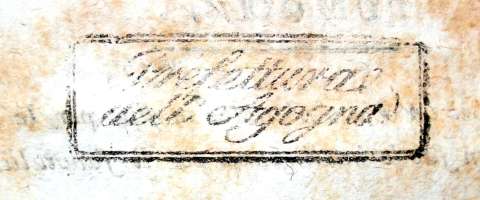 Prefettura
dell' Agogna